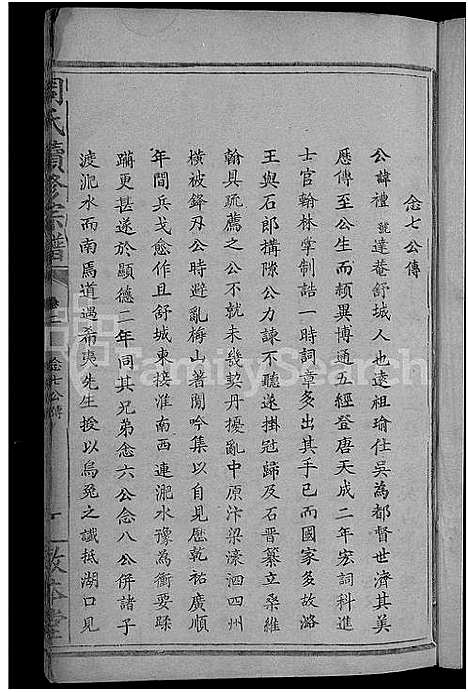 念七公傳
公諱禮號達菴舒城人也遠祖瑜仕吳為都督世濟其美
歷傳至公生而穎異博通五經登唐天成二年宏詞科進
士官翰林掌制誥一時詞章多出其手已而國家多故潞
王與石郎搆隙公力諫不聽遂掛冠歸及石晉纂立桑維
翰具疏薦之公不就未幾契丹擾亂中原汴梁濠泗四州
橫被鋒刃公時避亂梅山著閒吟集以自見歷乾祐廣順
年間兵戈愈作且舒城東接淮南西連淝水豫為衝要蹂
躪更甚遂於顯德二年同其兄弟念六公念八公併諸子
渡淝水而南馬道遇希夷先生授以烏兔之讖抵湖口見
周氏續修宗譜
卷二
念七公傳
敦本堂
FamilySearch